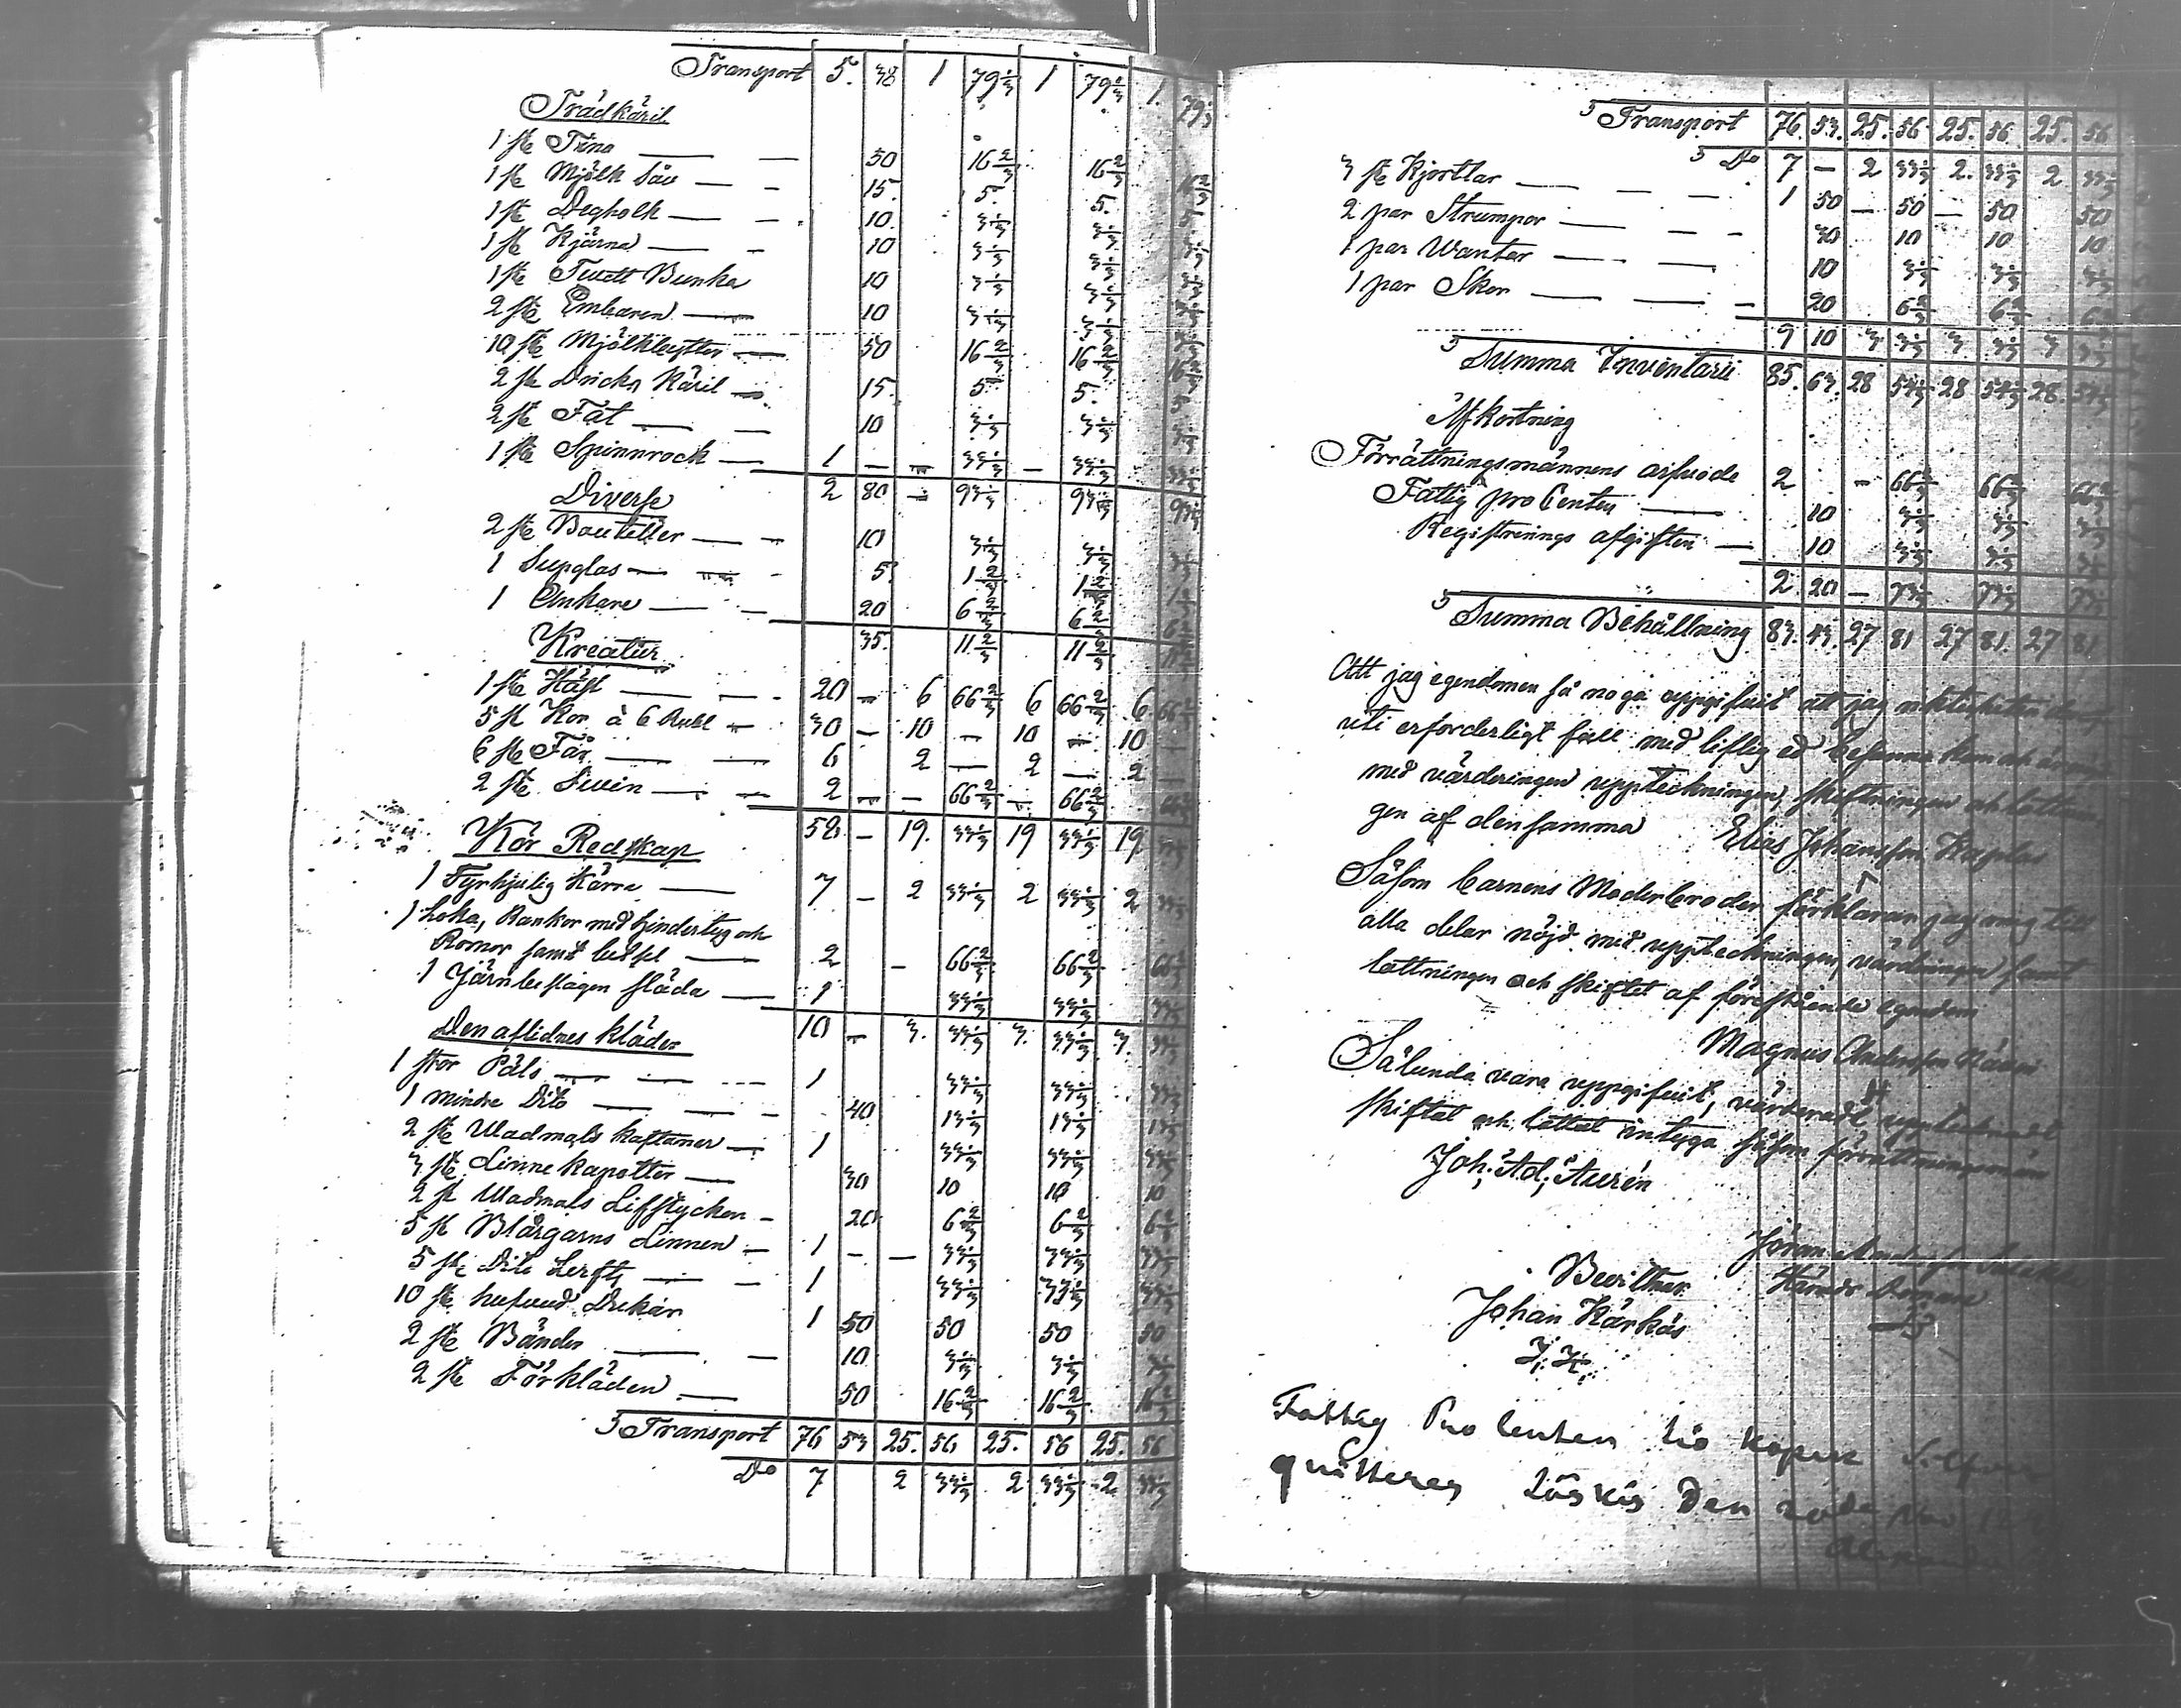 Transport 5. 38 1 79 1/3 1 79 1/3 1. 79 1/3
Trädkäril
1 st Tina 50 16 2/3 16 2/3 16 2/3
1 st Mjölk Såv 15. 5. 5. 5.
1 st Degholk 10. 3 1/3 3 1/3 3 1/3
1 st Kjärna 10 3 1/3 3 1/3 3 1/3
1 st Tvett Bunka 10 3 1/3 3 1/3 3 1/3
2 st Embaren 10 3 1/3 3 1/3 3 1/3
10 st Mjölkbyttor 50 16 2/3 16 2/3 16 2/3
2 st Dricks Käril 15. 5. 5. 5.
2 st Fat 10 3 1/3 3 1/3 3 1/3
1 st Spinnrock 1 — — 33 1/3 — 33 1/3 33 1/3
2 80 — 93 1/3 93 1/3 93 1/3
Diverse
2 st Bouteller 10 3 1/3 3 1/3 3 1/3
1 Supglas 5. 1 2/3 1 2/3 1 2/3
1 Ankare 20 6 2/3 6 2/3 6 2/3
35. 11 2/3 11 2/3 11 2/3
Kreatur
1 st Häst 20 — 6 66 2/3 6 66 2/3 6 66 2/3
5 st Kor à 6 Rubl 30 — 10 — 10 — 10 —
6 st Får 6 2 — 2 — 2 —
2 st Svin 2 — — 66 2/3 — 66 2/3 66 2/3
58 — 19. 33 1/3 19 33 1/3 19 33 1/3
Kör Redskap
1 Fyrhjulig Kärra 7 — 2 33 1/3 2 33 1/3 2 33 1/3
1 Loka, Rankor med hindertyg och
Romor samt betsel 2 — 66 2/3 66 2/3 66 2/3
1 Järnbeslagen släda 1 33 1/3 33 1/3 33 1/3
10 — 3. 33 1/3 3. 33 1/3 3. 33 1/3
Den aflidnes kläder
1 stor Päls 1 33 1/3 33 1/3 33 1/3
1 mindre Dito 40 13 1/3 13 1/3 13 1/3
2 st Wadmals kaftaner 1 33 1/3 33 1/3 33 1/3
3 st Linne kapotter 30 10 10 10
2 st Wadmals Lifstycken 20 6 2/3 6 2/3 6 2/3
5 st Blårgarns Linnen 1 — — 33 1/3 33 1/3 33 1/3
5 st Dito Lerfts 1 33 1/3 33 1/3 33 1/3
10 st hufvud Dukar 1 50 50 50 50
2 st Bänder 10 3 1/3 3 1/3 3 1/3
2 st Förkläden 50 16 2/3 16 2/3 16 2/3
Transport 76 53 25. 56 25. 56 25. 56
Do 7 2 33 1/3 2 33 1/3 2 33 1/3
Transport 76. 53. 25. 56 25. 56. 25. 56
Do 7 — 2 33 1/3 2. 33 1/3 2 33 1/3
3 st Kjortlar 1 50 — 50 — 50 50
2 par Strumpor 30 10 10 10
1 par Wantar 10 3 1/3 3 1/3 3 1/3
1 par Skor 20 6 2/3 6 2/3
9 10 3 33 1/3 3 33 1/3 3 33 1/3
Summa Inventarii 85. 63. 28 54 1/3 28 54 1/3 28. 54 1/3
Afkortning
Förrättningsmännens arfvode 2 — 66 2/3 66 2/3 66 2/3
Fattig pro Centen 10 3 1/3 3 1/3 3 1/3
Registrerings afgiften 10 3 1/3 3 1/3
2. 20 — 73 1/3 73 1/3 73 1/3
Summa Behållning 83. 43. 27 81 27 81. 27 81
Att jag egendomen så noga uppgifvit att jag riktigheten
uti erforderligt fall med liflig ed besanna kan och
med värderingen uppteckningen, skiftningen och
gen af densamma Elias Johansson
Såsom barnens Moderbroder förklarar jag mig till
alla delar nöjd med uppteckningen, värderingen samt
lottningen och skiftet af förestående egendom
Magnus Andersson
Sålunda vara uppgifvit, värderadt, upptecknadt
skiftat och lottat intyga såsom förrättningsmän
Joh: Ad: Aurén
Jöran
Bevittnar
Johan Kärkäs
Fattig Pro Centen tio kopek
qvitteras Den